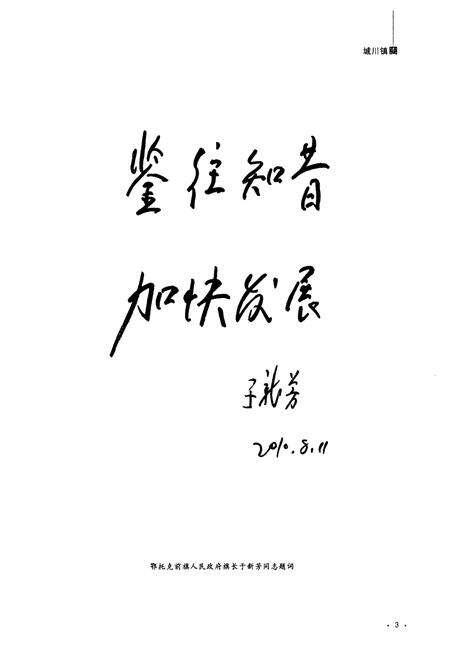 城川镇
鉴往知昔
加快发展
于新芳
2010.8.11
鄂托克前旗人民政府旗长于新芳同志题词
· 3 ·